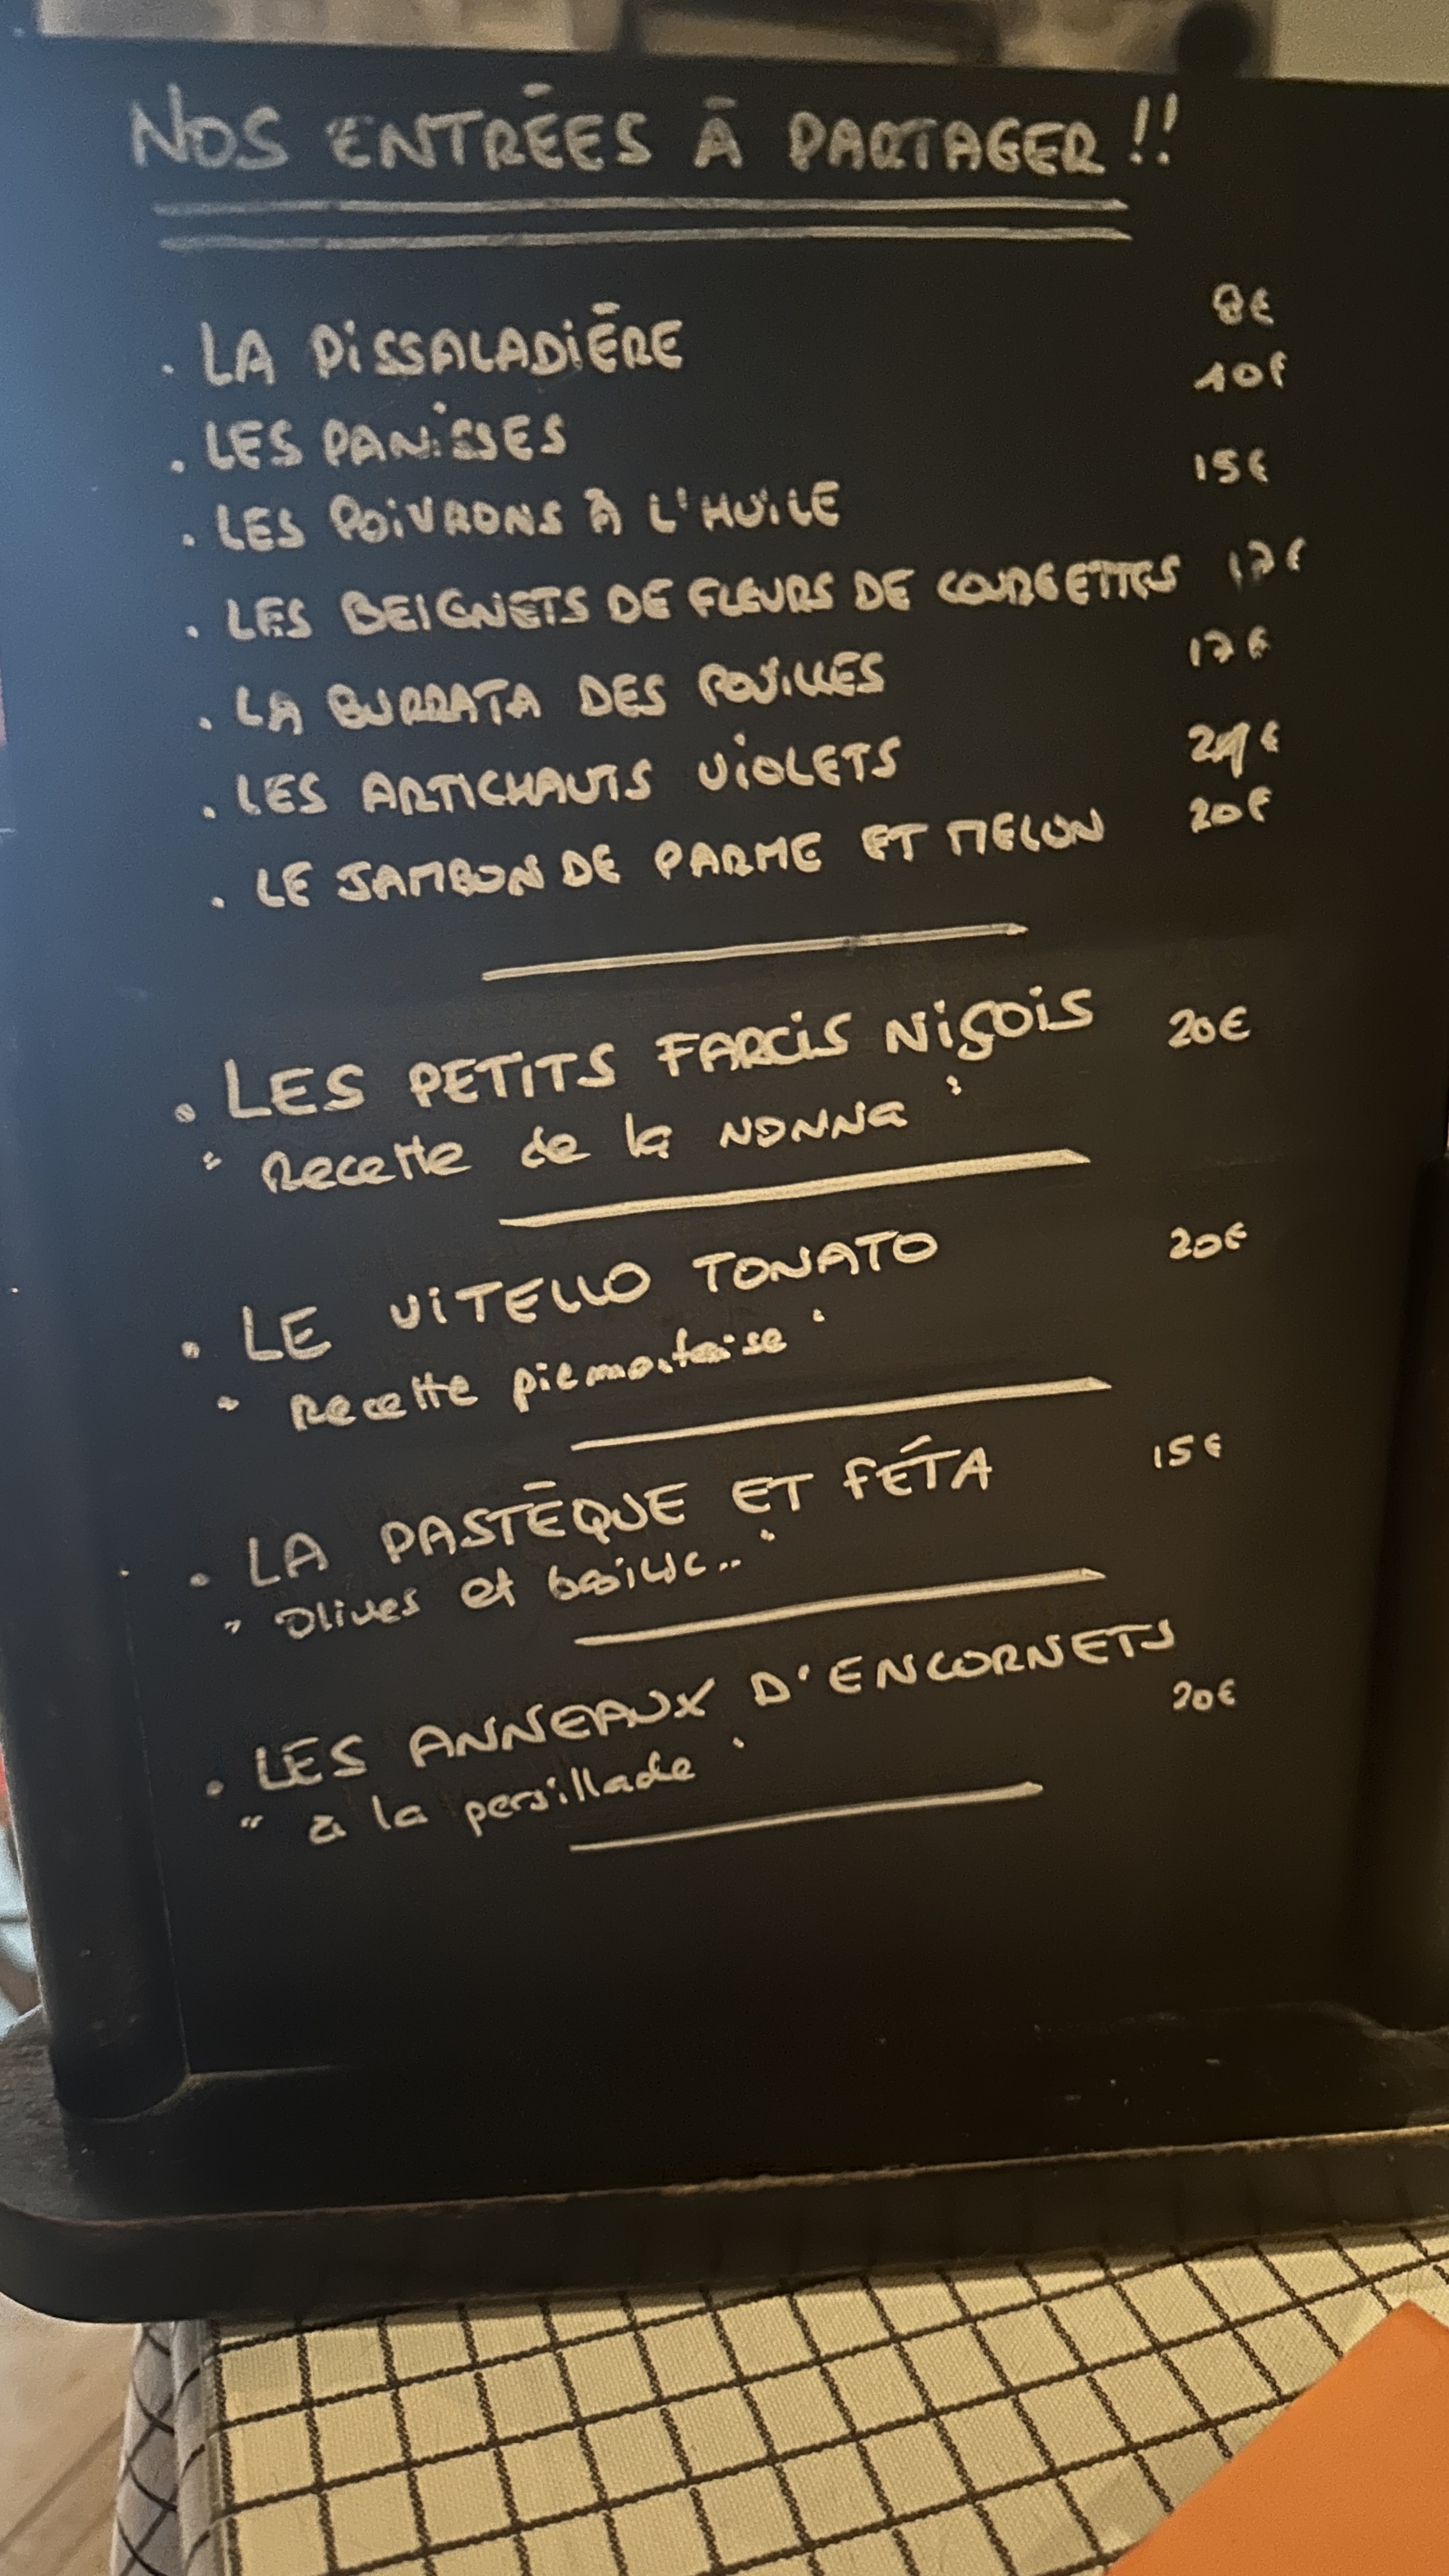 NOS ENTRÉES À PARTAGER !!
. LA PISSALADIÈRE 8€
. LES PANISSES 10€
. LES POIVRONS À L'HUILE 15€
. LES BEIGNETS DE FLEURS DE COURGETTES 17€
. LA BURRATA DES POUILLES 17€
. LES ARTICHAUTS VIOLETS
. LE JAMBON DE PARME ET MELON 20€
. LES PETITS FARCIS NIÇOIS 20€
" Recette de la NONNA "
. LE VITELLO TONATO 20€
" Recette piemontaise "
. LA PASTÈQUE ET FÉTA 15€
" Olives et basilic.. "
. LES ANNEAUX D'ENCORNETS
20€
" à la persillade "